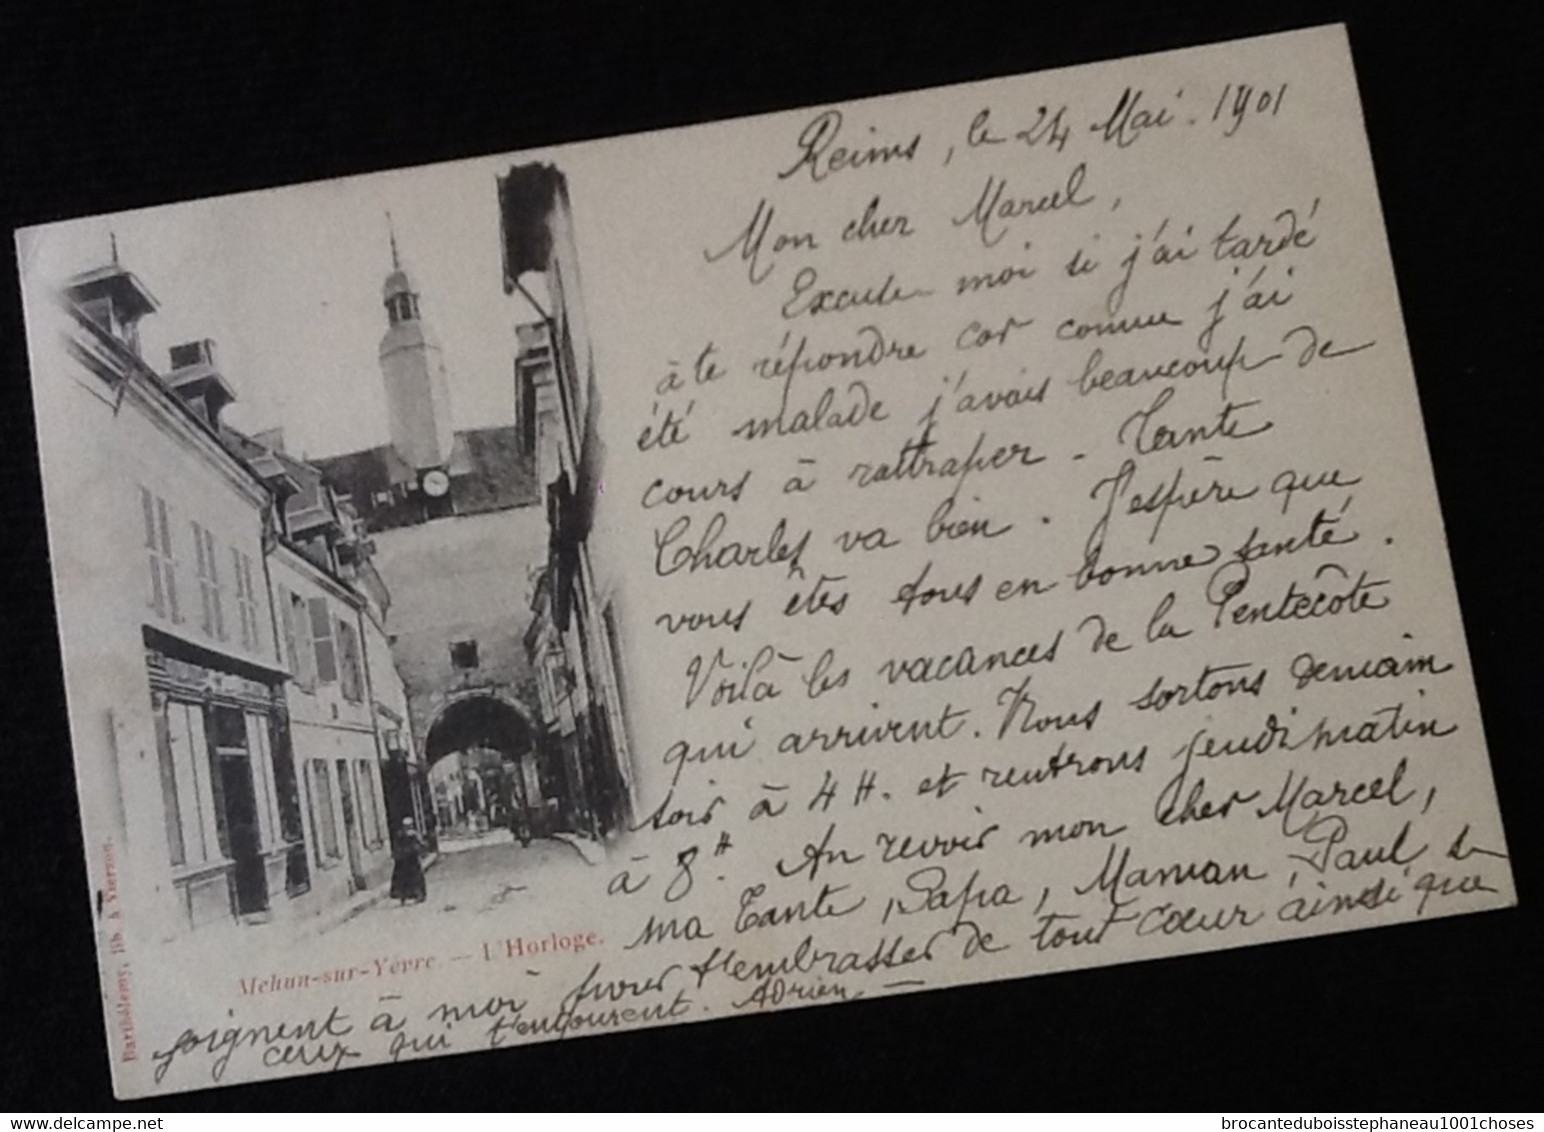 Reims, le 24 Mai. 1901
Mon cher Marcel,
Excuse moi si j'ai tardé
à te répondre car comme j'ai
été malade j'avais beaucoup de
cours à rattraper. Tante
Charles va bien. J'espère que
vous êtes tous en bonne santé.
Voilà les vacances de la Pentecôte
qui arrivent. Nous sortons demain
soir à 4 H. et rentrons jeudi matin
à 8 H. Au revoir mon cher Marcel,
ma Tante, Papa, Maman, Paul se
joignent à moi pour t'embrasser de tout cœur ainsi que
ceux qui t'entourent. Adrien
Mehun-sur-Yèvre. — L'Horloge.
Barthélemy, lib. à Vierzon.
brocanteduboisstephaneau1001choses